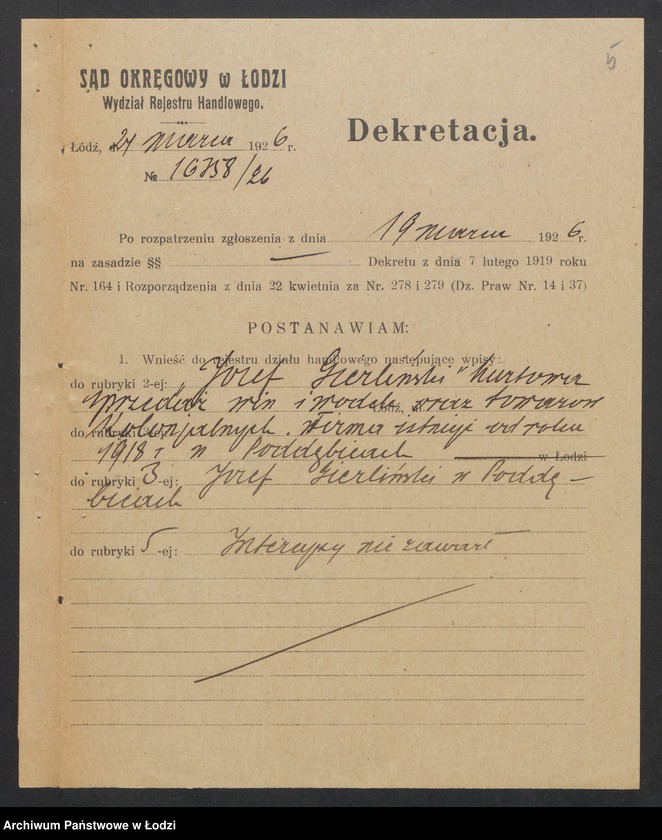 5
SĄD OKRĘGOWY w ŁODZI
Wydział Rejestru Handlowego.
Dekretacja.
Łódź, d. 24 marca 1926 r.
№ 16758/26
Po rozpatrzeniu zgłoszenia z dnia 19 marca 1926 r.
na zasadzie §§ — Dekretu z dnia 7 lutego 1919 roku
Nr. 164 i Rozporządzenia z dnia 22 kwietnia za Nr. 278 i 279 (Dz. Praw Nr. 14 i 37)
POSTANAWIAM:
1. Wnieść do rejestru działu handlowego następujące wpisy:
do rubryki 2-ej: „Josef Gierliński" hurtowa
sprzedaż win i wódek oraz towarów
do rubryki kolonjalnych. Firma istnieje od roku
1918 r w Poddębicach w Łodzi
do rubryki 3-ej: Josef Gierliński w Poddę-
bicach
do rubryki 5-ej: Intercyzy nie zawarł
Archiwum Państwowe w Łodzi